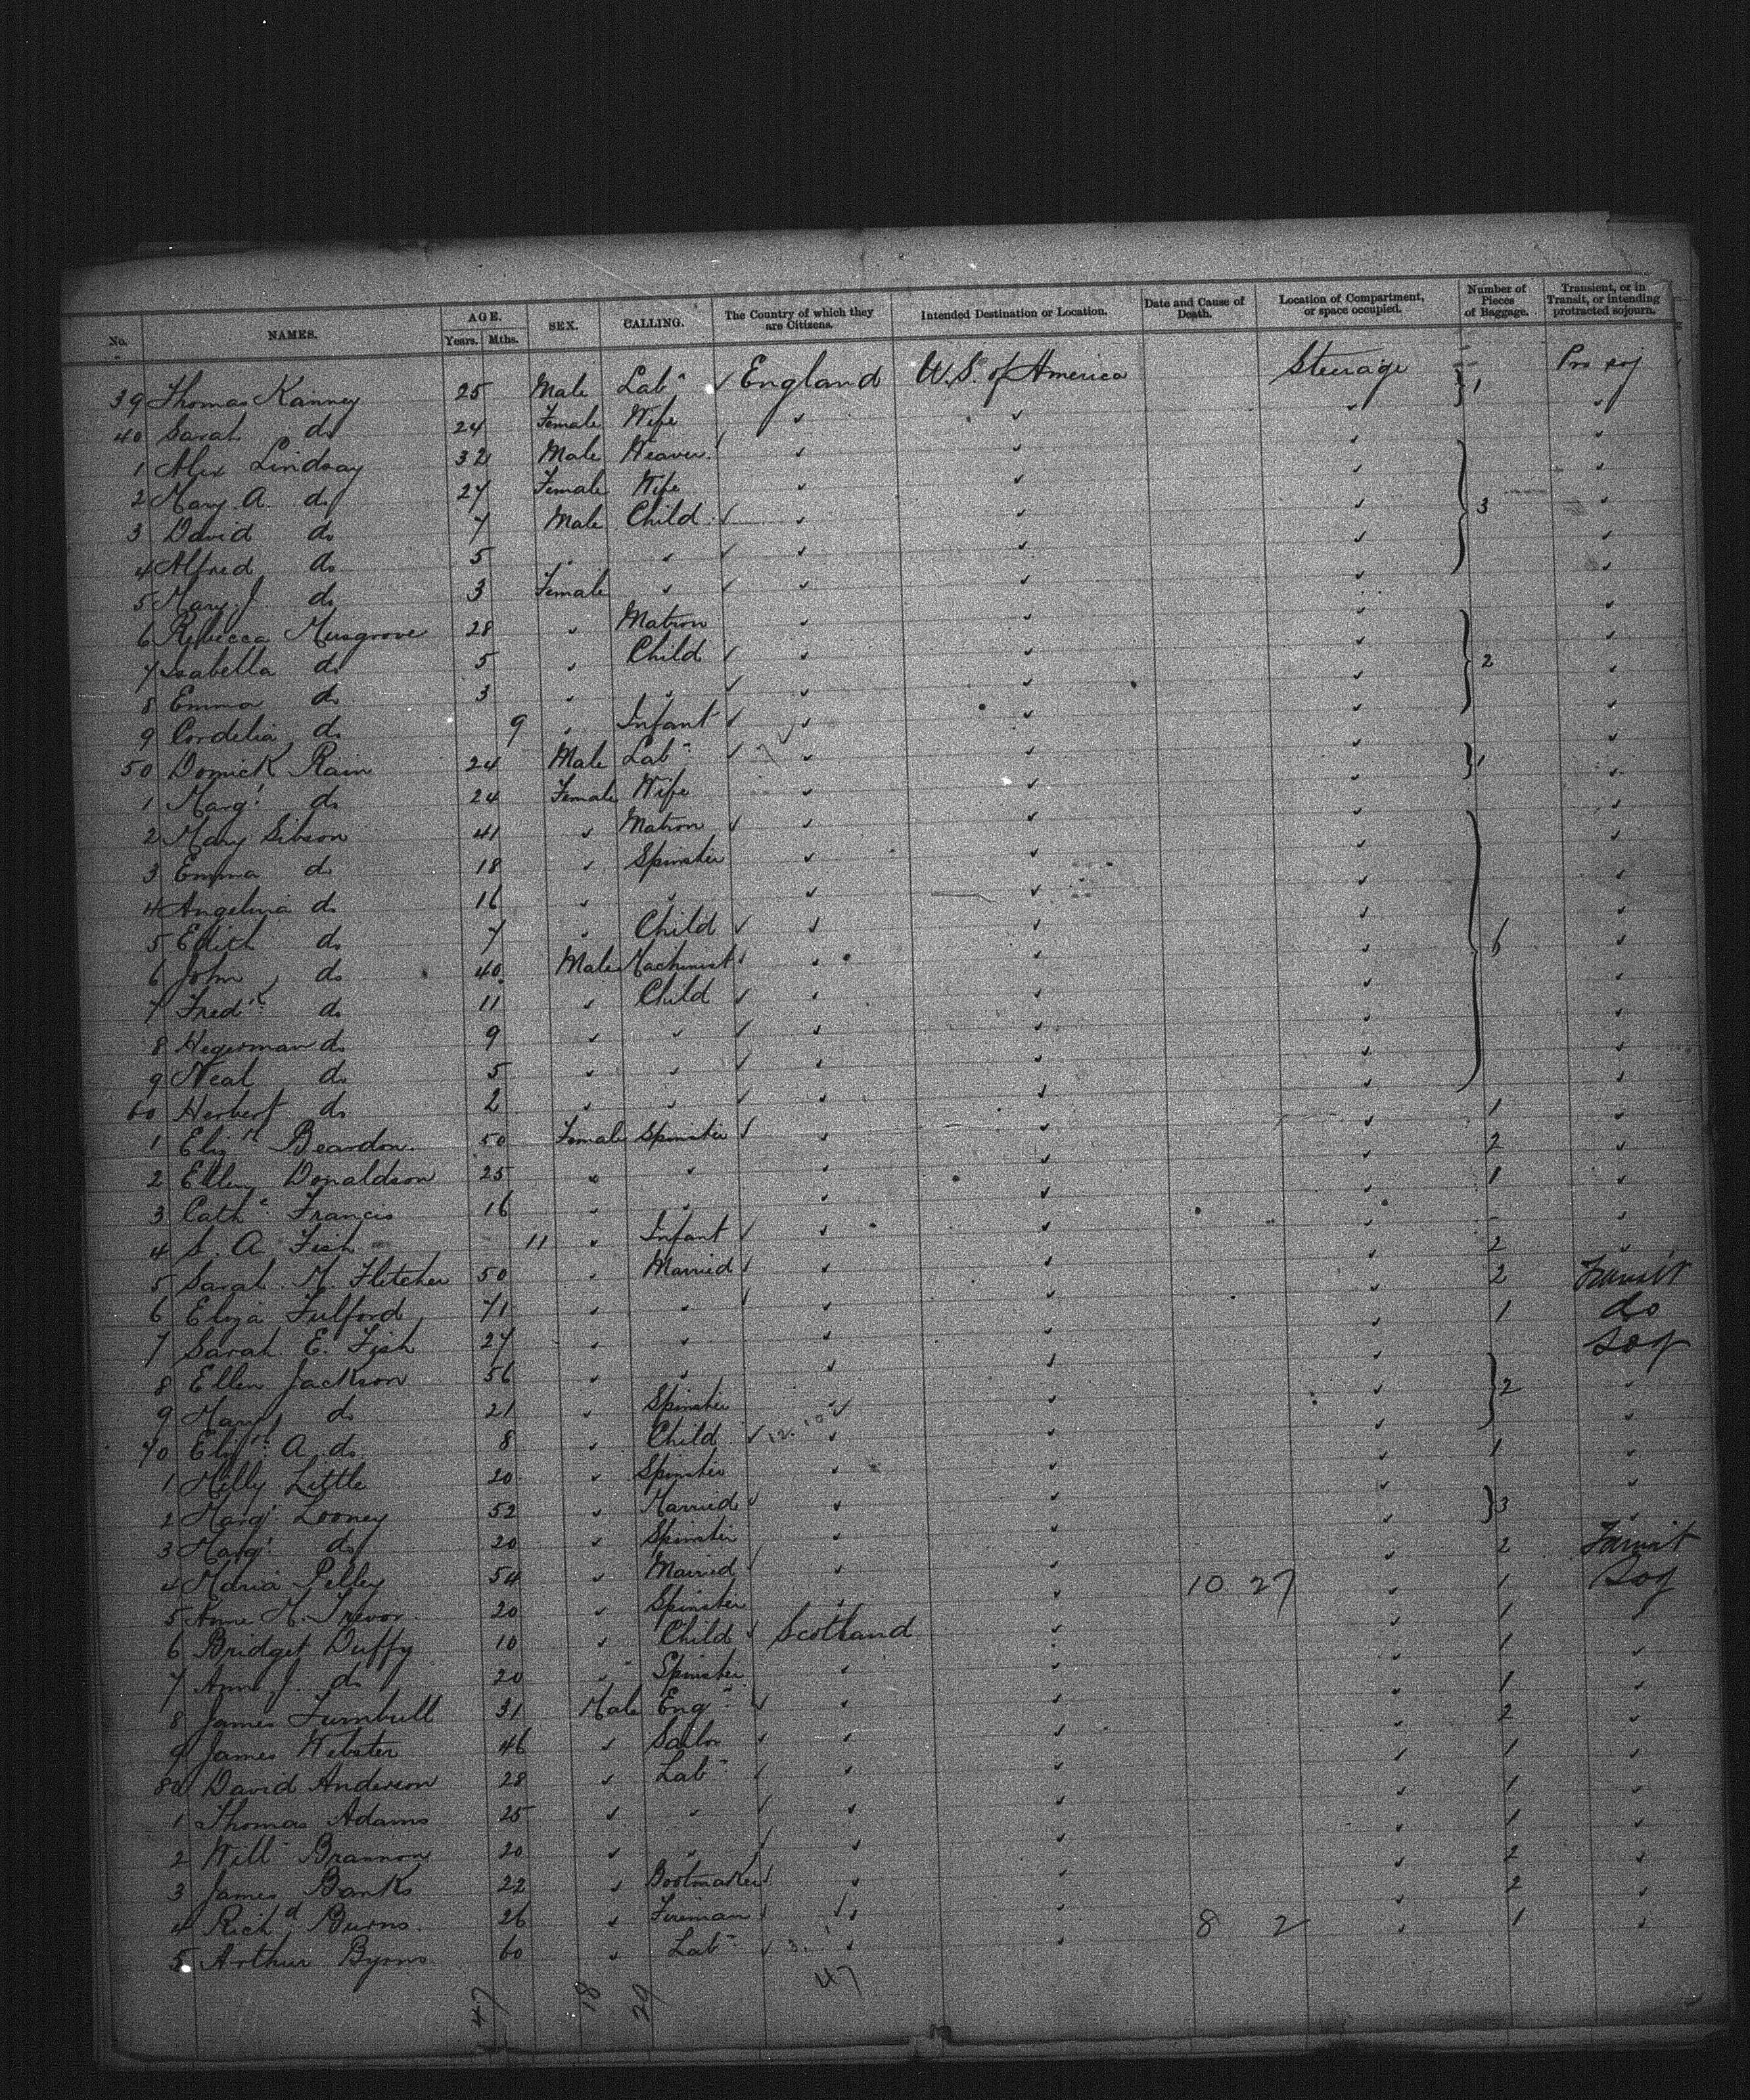 No. NAMES. AGE. Years. Mths. SEX. CALLING. The Country of which they are Citizens. Intended Destination or Location. Date and Cause of Death. Location of Compartment, or space occupied. Number of Pieces of Baggage. Transient, or in Transit, or intending protracted sojourn.
39 Thomas Kanney 25 Male Labr ✓ England U.S. of America Steerage } 1 Pro soj
40 Sarah do 24 Female Wife ✓ ✓ ✓ ✓
1 Alex Lindsay 32 Male Weaver ✓ ✓ ✓ ✓ ✓
2 Mary A. do 27 Female Wife ✓ ✓ ✓ ✓
3 David do 7 Male Child ✓ ✓ ✓ ✓ } 3 ✓
4 Alfred do 5 ✓ ✓ ✓ ✓ ✓ ✓ ✓
5 Mary J. do 3 Female ✓ ✓ ✓ ✓ ✓ ✓
6 Rebecca Musgrove 28 ✓ Matron ✓ ✓ ✓ ✓
7 Isabella do 5 ✓ Child ✓ ✓ ✓ ✓ } 2 ✓
8 Emma do 3 ✓ ✓ ✓ ✓ ✓ ✓ ✓
9 Cordelia do 9 ✓ Infant ✓ ✓ ✓ ✓ ✓
50 Domick Rain 24 Male Labr ✓ ✓ ✓ ✓ } 1 ✓
1 Margt do 24 Female Wife ✓ ✓ ✓ ✓
2 Mary Gibson 41 ✓ Matron ✓ ✓ ✓ ✓ ✓
3 Emma do 18 ✓ Spinster ✓ ✓ ✓ ✓
4 Angelina do 16 ✓ ✓ ✓ ✓ ✓ ✓
5 Edith do 7 ✓ Child ✓ ✓ ✓ ✓ ✓
6 John do 40 Male Machinist ✓ ✓ ✓ ✓ } 6 ✓
7 Fredk do 11 ✓ Child ✓ ✓ ✓ ✓ ✓
8 Hegerman do 9 ✓ ✓ ✓ ✓ ✓ ✓ ✓
9 Neal do 5 ✓ ✓ ✓ ✓ ✓ ✓ ✓
60 Herbert do 2 ✓ ✓ ✓ ✓ ✓ ✓ ✓
1 Elizth Beardon 50 Female Spinster ✓ ✓ ✓ ✓ 1 ✓
2 Ellen Donaldson 25 ✓ ✓ ✓ ✓ ✓ 2 ✓
3 Cathe Francis 16 ✓ ✓ ✓ ✓ ✓ 1 ✓
4 S. A. Fish 11 ✓ Infant ✓ ✓ ✓ ✓ - ✓
5 Sarah M. Fletcher 50 ✓ Married ✓ ✓ ✓ ✓ 2 ✓
6 Eliza Fulford 71 ✓ ✓ ✓ ✓ ✓ ✓ 2 Transit
7 Sarah E. Fish 27 ✓ ✓ ✓ ✓ ✓ 1 do
8 Ellen Jackson 56 ✓ ✓ ✓ ✓ ✓ Soj
9 Mary do 21 ✓ Spinster ✓ ✓ ✓ } 2 ✓
70 Elizth A do 8 ✓ Child ✓ ✓ ✓ ✓ ✓
1 Milly Little 20 ✓ Spinster ✓ ✓ ✓ 1 ✓
2 Margt Looney 52 ✓ Married ✓ ✓ ✓ ✓ } 3 ✓
3 Margt do 20 ✓ Spinster ✓ ✓ ✓ ✓
4 Maria Pelley 54 ✓ Married ✓ ✓ ✓ ✓ 2 Transit
5 Anne M. Trevor 20 ✓ Spinster ✓ ✓ 10 27 ✓ 1 Soj
6 Bridget Duffy 10 ✓ Child ✓ Scotland ✓ ✓ 1 ✓
7 Anne J. do 20 ✓ Spinster ✓ ✓ ✓ 1 ✓
8 James Turnbull 31 Male Engr ✓ ✓ ✓ ✓ 1 ✓
9 James Webster 46 ✓ Sailor ✓ ✓ ✓ ✓ 2 ✓
80 David Anderson 28 ✓ Labr ✓ ✓ ✓ ✓ 1 ✓
1 Thomas Adams 25 ✓ ✓ ✓ ✓ ✓ ✓ 1 ✓
2 Willm Brannon 20 ✓ ✓ ✓ ✓ ✓ ✓ 1 ✓
3 James Banks 22 ✓ Bootmaker ✓ ✓ ✓ ✓ 2 ✓
4 Richd Burns 26 ✓ Fireman ✓ ✓ ✓ ✓ 2 ✓
5 Arthur Byrns 60 ✓ Labr ✓ ✓ ✓ 8 2 ✓ 1 ✓
47 18 29 47